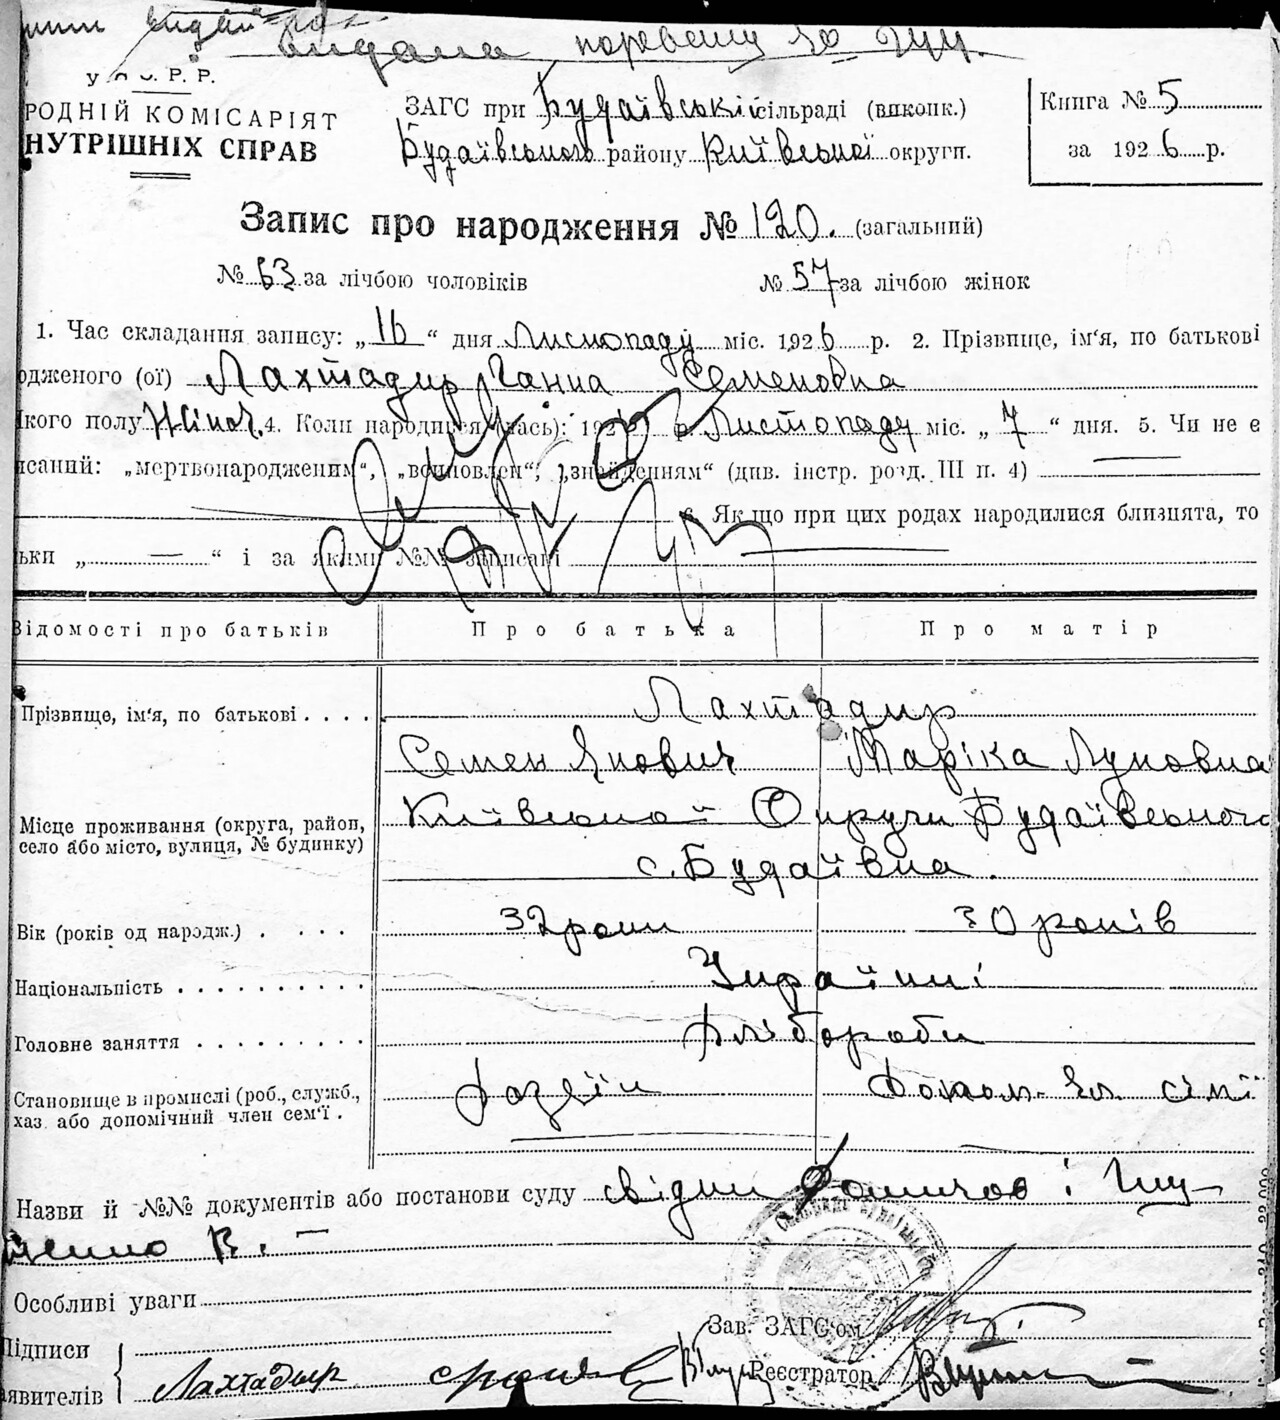 видана
У.С.Р.Р.
РОДНІЙ КОМІСАРІЯТ
НУТРІШНІХ СПРАВ
ЗАГС при Будаївській сільраді (виконк.)
Будаївського району Київської округи.
Книга № 5
за 1926 р.
Запис про народження № 120. (загальний)
№ 63 за лічбою чоловіків № 57 за лічбою жінок
1. Час складання запису: „16“ дня Листопаду міс. 1926 р. 2. Прізвище, ім‘я, по батькові
одженого (ої) Лахтадир Ганна Семеновна
кого полу Жіноч. 4. Коли народився (лась): 192 р. Листопаду міс. „7“ дня. 5. Чи не є
исаний: „мертвонародженим“, „всиновлен“, „знайденням“ (див. інстр. розд. III п. 4)
6. Як що при цих родах народилися близнята, то
ьки „ — “ і за якими №№ записані
Відомості про батьків Про батька Про матір
Прізвище, ім‘я, по батькові . . . . Лахтадир
Семен Якович Маріка Луковна
Місце проживання (округа, район, село або місто, вулиця, № будинку) Київської Округи Будаївського
с. Будаївка.
Вік (років од народж.) . . . . 32 роки 30 років
Національність . . . . . . . . . . Українці
Головне заняття . . . . . . . . . Хлібороби
Становище в промислі (роб., служб.,
хаз. або допомічний член сем‘ї . хазяїн допом. чл. сімї
Назви й №№ документів або постанови суду свідки і
В. —
Особливі уваги
Зав. ЗАГС‘ом
Підписи
аявителів Лахтадыр
Реєстратор